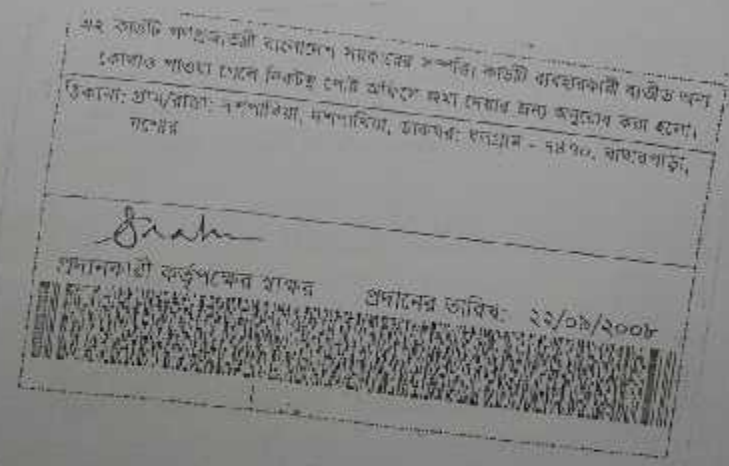 এই কার্ডটি গণপ্রজাতন্ত্রী বাংলাদেশ সরকারের সম্পত্তি। কার্ডটি ব্যবহারকারী ব্যতীত অন্য
কোথাও পাওয়া গেলে নিকটস্থ পোষ্ট অফিসে জমা দেবার জন্য অনুরোধ করা হলো।
ঠিকানা: গ্রাম/রাস্তা: দশপাখিয়া, দশপাখিয়া, ডাকঘর: - ৭৪৭০, বাঘারপাড়া,
যশোর
প্রদানকারী কর্তৃপক্ষের স্বাক্ষর প্রদানের তারিখ: ২২/০৯/২০০৮